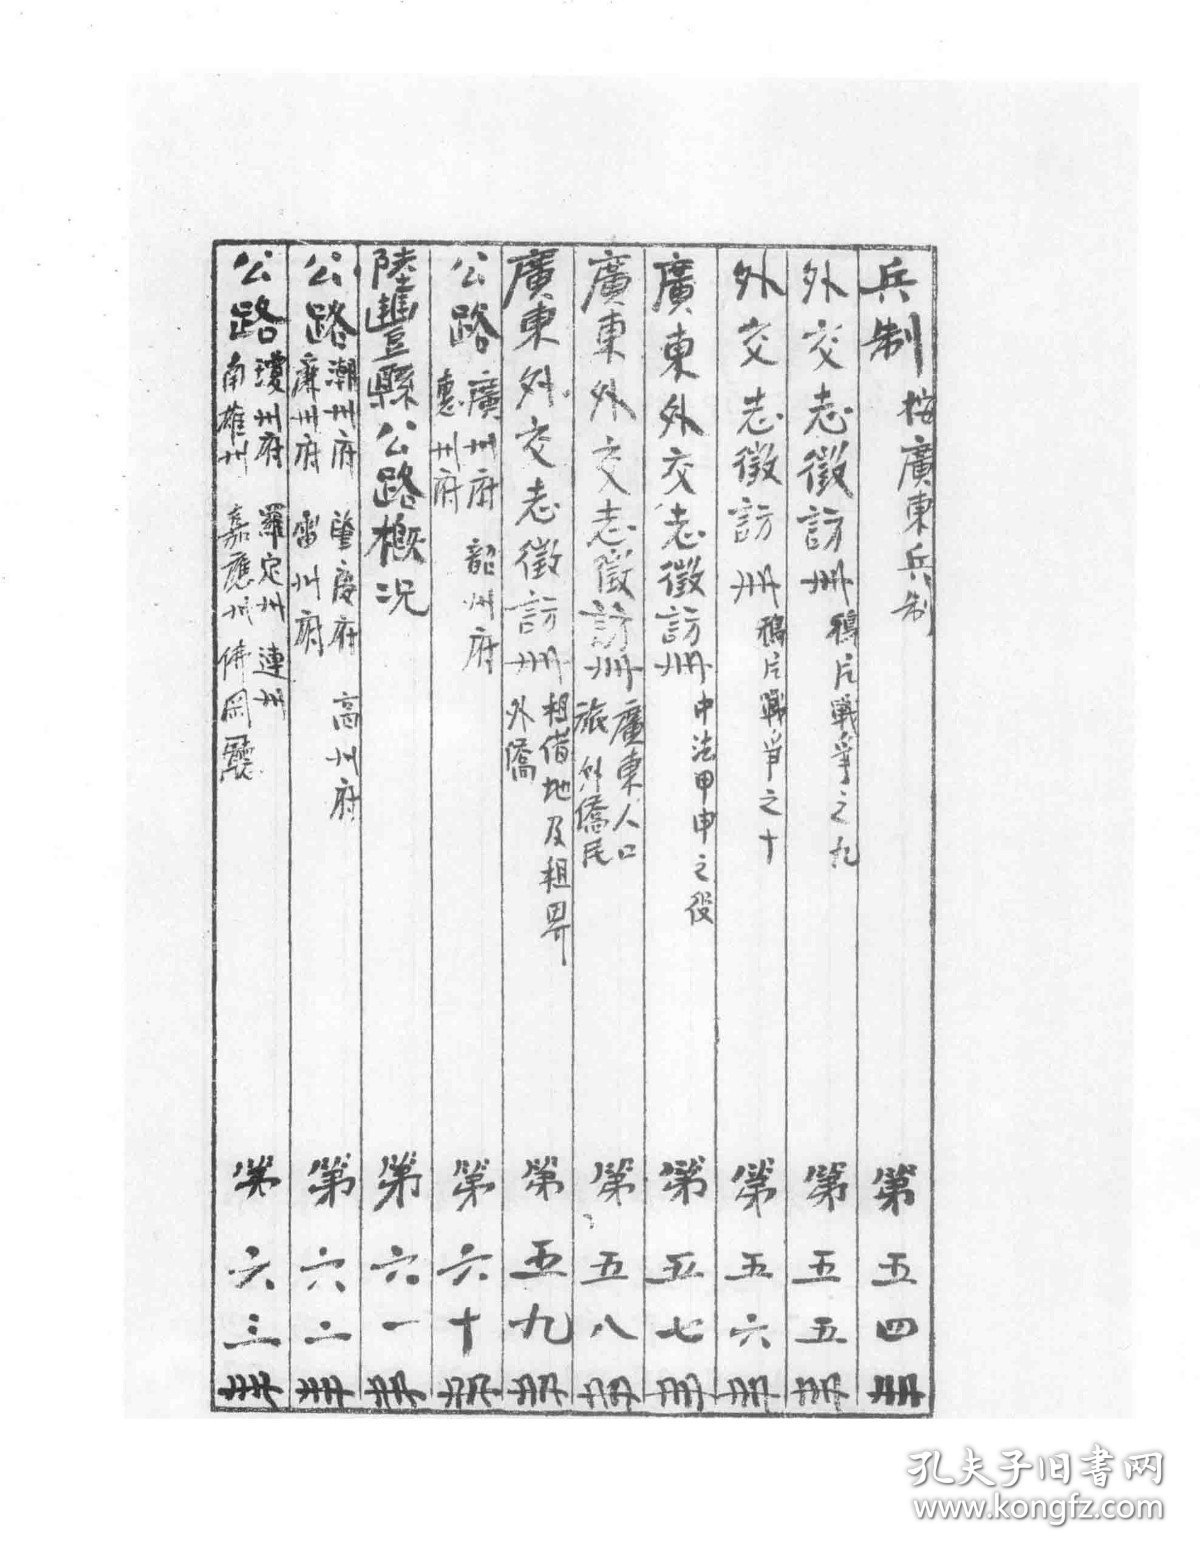 兵制 按廣東兵制 第五四册
外交志徵訪册 鴉片戰爭之九 第五五册
外交志徵訪册 鴉片戰爭之十 第五六册
廣東外交志徵訪册 中法甲申之役 第五七册
廣東外交志徵訪册 廣東人口旅外僑民 第五八册
廣東外交志徵訪册 租借地及租界外僑 第五九册
公路 廣州府 韶州府 惠州府 第六十册
陸豐縣公路概況 第六一册
公路 潮州府 肇慶府 高州府 廉州府 雷州府 第六二册
公路 瓊州府 羅定州 連州 南雄州 嘉應州 佛岡廳 第六三册
孔夫子旧書网
www.kongfz.com